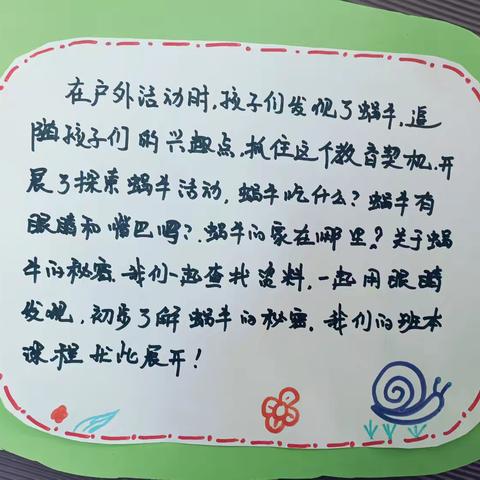 在户外活动时,孩子们发现了蜗牛,追
随孩子们的兴趣点,抓住这个教育契机,开
展了探索蜗牛活动,蜗牛吃什么?蜗牛有
眼睛和嘴巴吗?,蜗牛的家在哪里?关于蜗
牛的秘密,我们一起查找资料,一起用眼睛
发现,初步了解蜗牛的秘密,我们的班本
课程于此展开!